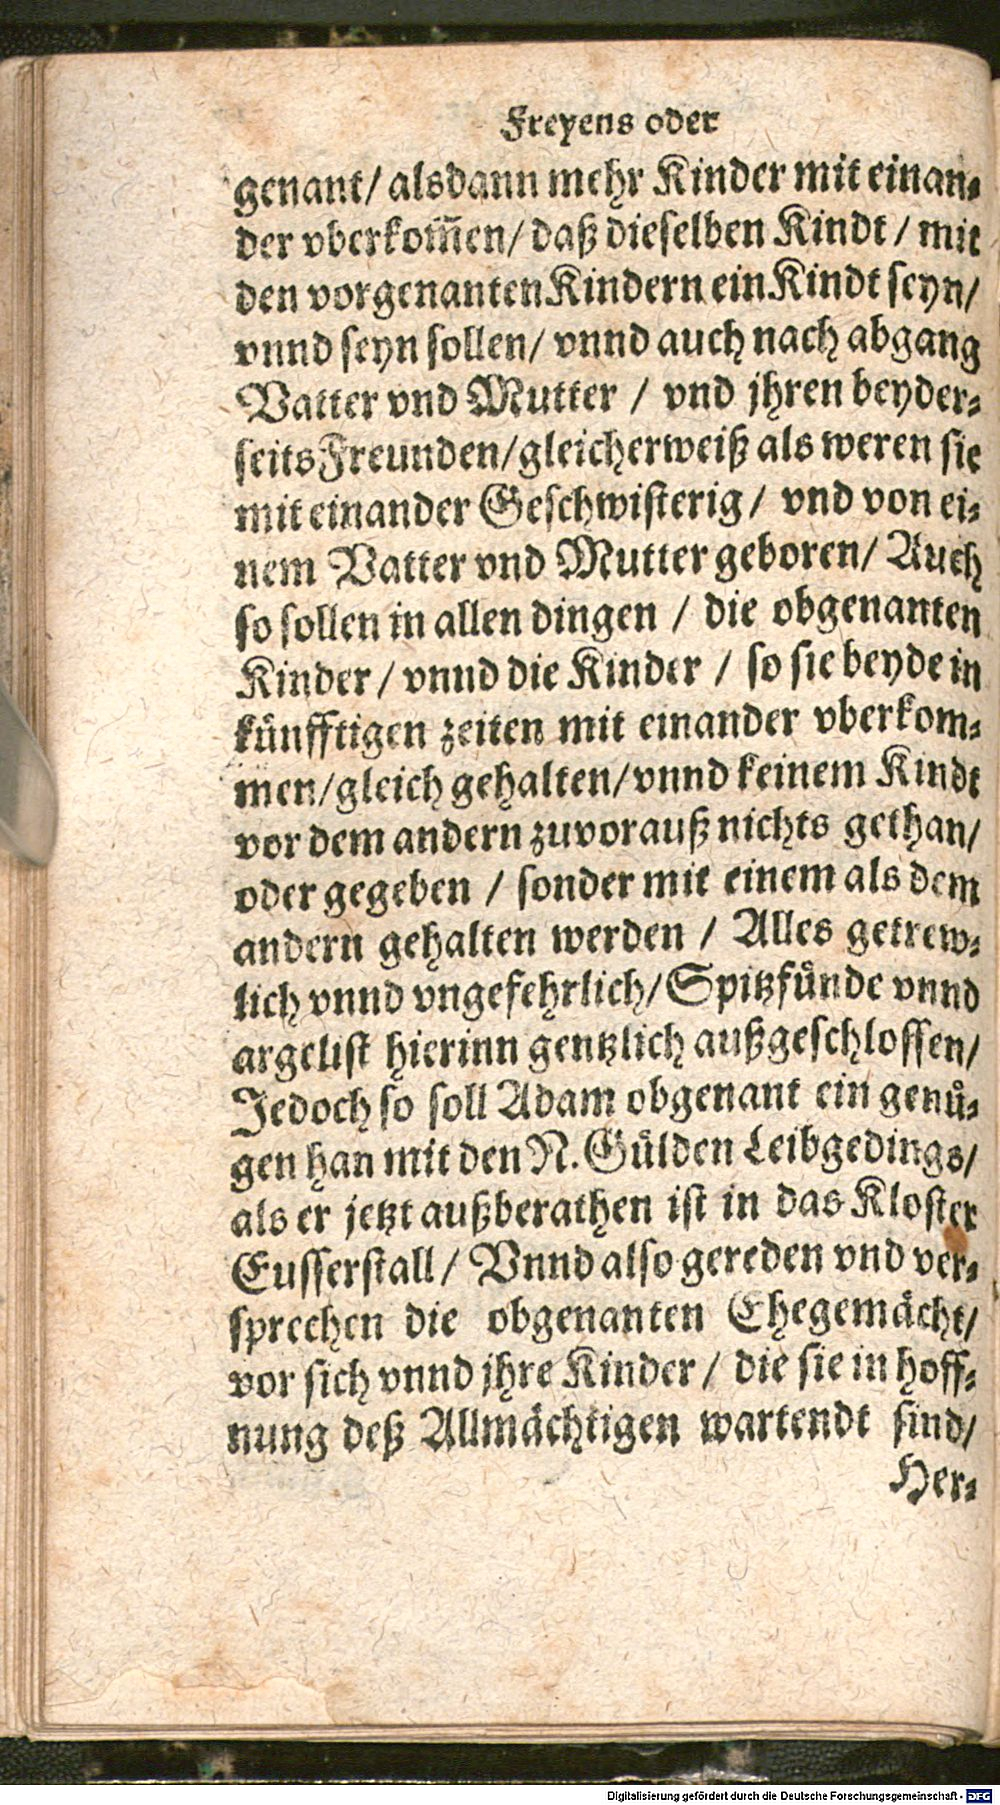 Freyens oder
genant/ alsdann mehr Kinder mit einan⸗
der vberkom̃en/ daß dieselben Kindt / mit
den vorgenanten Kindern ein Kindt seyn/
vnnd seyn sollen/ vnnd auch nach abgang
Vatter vnd Mutter / vnd jhren beyder⸗
seits Freunden/ gleicherweiß als weren sie
mit einander Geschwisterig/ vnd von ei⸗
nem Vatter vnd Mutter geboren/ Auch
so sollen in allen dingen / die obgenanten
Kinder/ vnnd die Kinder / so sie beyde in
kuͤnfftigen zeiten mit einander vberkom⸗
men/ gleich gehalten/ vnnd keinem Kindt
vor dem andern zuvorauß nichts gethan/
oder gegeben / sonder mit einem als dem
andern gehalten werden / Alles getrew⸗
lich vnnd vngefehrlich/ Spitzfuͤnde vnnd
argelist hierinn gentzlich außgeschlossen/
Jedoch so soll Adam obgenant ein genuͤ⸗
gen han mit den N. Guͤlden Leibgedings/
als er jetzt außberathen ist in das Kloster
Eusserstall/ Vnnd also gereden vnd ver⸗
sprechen die obgenanten Ehegemaͤcht/
vor sich vnnd jhre Kinder/ die sie in hoff⸗
nung deß Allmaͤchtigen wartendt sind/
Her⸗
Digitalisierung gefördert durch die Deutsche Forschungsgemeinschaft - DFG